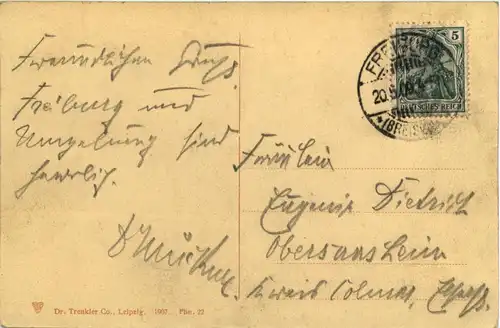 Freundlichen Gruß
Freiburg und
Umgebung sind
herrlich.
Fräulein
Eugenie Dietrich
Obersaasheim
Kreis Colmar, Elsass
5
FREIBURG
20.
(BREISGAU)
DEUTSCHES REICH
Dr. Trenkler Co., Leipzig. 1907. Fbr. 22